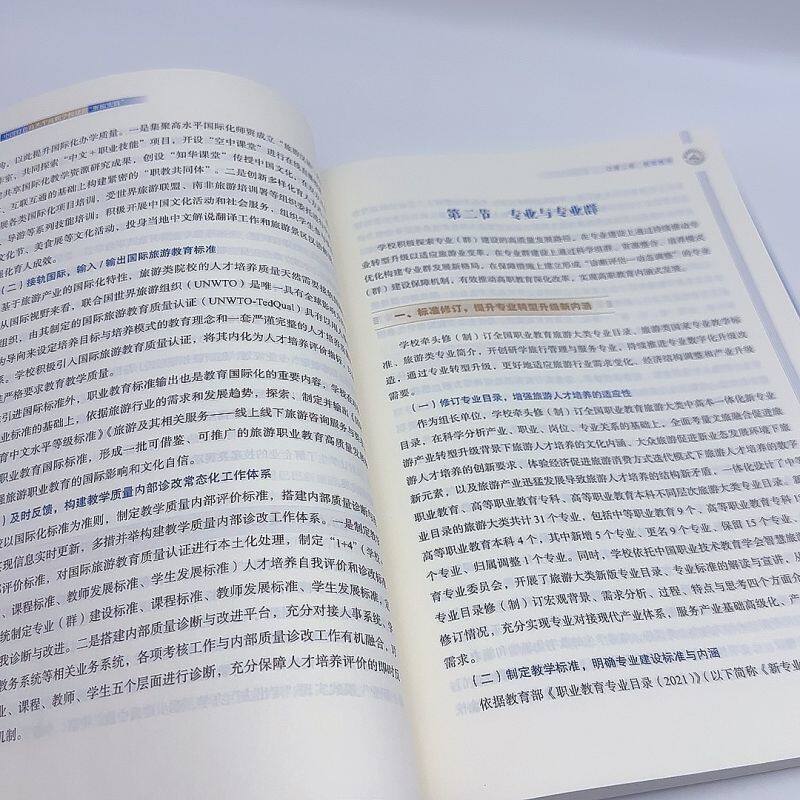 构，以此提升国际化办学质量。一是集聚高水平国际化师资成立“旅游
室，共同探索“中文+职业技能”项目，开设“空中课堂”进行在
共享国际化教学资源研究成果，创设“知华课堂”传授中国文化，在
、互联互通的基础上构建紧密的“职教共同体”。二是创新多样化育人
展各类国际化项目培训，受世界旅游联盟、南非旅游培训署等组织委托
、导游等系列技能培训；积极开展中国文化活动和社会服务，组织学生
文化节、美食展等文化活动，投身当地中文解说翻译工作和旅游景区
强化育人成效。
（二）接轨国际，输入/输出国际旅游教育标准
基于旅游产业的国际化特性，旅游类院校的人才培养质量天然需要接
从国际视野来看，联合国世界旅游组织（UNWTO）是唯一具有全球影响
组织，由其制定的国际旅游教育质量认证（UNWTO-TedQual）具有以
为导向来设定培养目标与培养模式的教育理念和一套严谨完整的人才培养
系。学校积极引入国际旅游教育质量认证，将其内化为人才培养评价指标
严格要求教育教学质量。
引进国际标准外，职业教育标准输出也是教育国际化的重要内容，学校在
业标准的基础上，依据旅游行业的需求和发展趋势，探索、制定并输出
育中文水平等级标准》《旅游及其相关服务——线上线下旅游咨询服务与
职业教育国际标准，形成一批可借鉴、可推广的旅游职业教育高质量发
强旅游职业教育的国际影响和文化自信。
）及时反馈，构建教学质量内部诊改常态化工作体系
以国际化标准为准则，制定教学质量内部评价标准，搭建内部质量诊断
实现信息实时更新，多措并举构建教学质量内部诊改工作体系。一是制定
部评价标准，对国际旅游教育质量认证进行本土化处理，制定“1+4”（学校
、课程标准、教师发展标准、学生发展标准）人才培养自我评价和诊改标
统制定专业（群）建设标准、课程标准、教师发展标准、学生发展标准，
我诊断与改进。二是搭建内部质量诊断与改进平台，充分对接人事系统、学
教务系统等相关业务系统，各项考核工作与内部质量诊改工作有机融合，
业、课程、教师、学生五个层面进行诊断，充分保障人才培养评价的即时反
机制。
第二节 专业与专业群
学校积极探索专业（群）建设的高质量发展路径，在专业建设上通过持续推动专
业转型升级以适应旅游业变革，在专业群建设上通过科学组群、资源整合、培养模式
优化构建专业群发展新格局，在保障措施上建立形成“诊断评估—动态调整”的专业
（群）建设保障机制，有效推动高职教育深化改革，实现高职教育内涵式发展。
一、标准修订，提升专业转型升级新内涵
学校牵头修（制）订全国职业教育旅游大类专业目录、旅游类国家专业教学标
准、旅游类专业简介，开创研学旅行管理与服务专业，持续推进专业数字化升级改
造，通过专业转型升级，更好地适应旅游行业需求变化、经济结构调整和产业升级
需要。
（一）修订专业目录，增强旅游人才培养的适应性
作为组长单位，学校牵头修（制）订全国职业教育旅游大类中高本一体化新专业
目录，在科学分析产业、职业、岗位、专业关系的基础上，全面考量文旅融合促进旅
游产业转型升级背景下旅游人才培养的文化内涵、大众旅游促进新业态发展环境下旅
游人才培养的创新要求、体验经济促进旅游消费方式迭代模式下旅游人才培养的数字
新元素，以及旅游产业迅猛发展导致旅游人才培养的结构新矛盾，一体化设计了中等
职业教育、高等职业教育专科、高等职业教育本科不同层次旅游大类专业目录。新专
业目录的旅游大类共计31个专业，包括中等职业教育9个、高等职业教育专科18
高等职业教育本科4个，其中新增5个专业、更名9个专业、保留15个专业、
个专业、归属调整1个专业。同时，学校依托中国职业技术教育学会智慧旅
育专业委员会，开展了旅游大类新版专业目录、专业标准的解读与宣讲，从
专业目录修（制）订宏观背景、需求分析、过程、特点与思考四个方面介
修订情况，充分实现专业对接现代产业体系，服务产业基础高级化、产
需求。
（二）制定教学标准，明确专业建设标准与内涵
依据教育部《职业教育专业目录（2021）》（以下简称《新专业